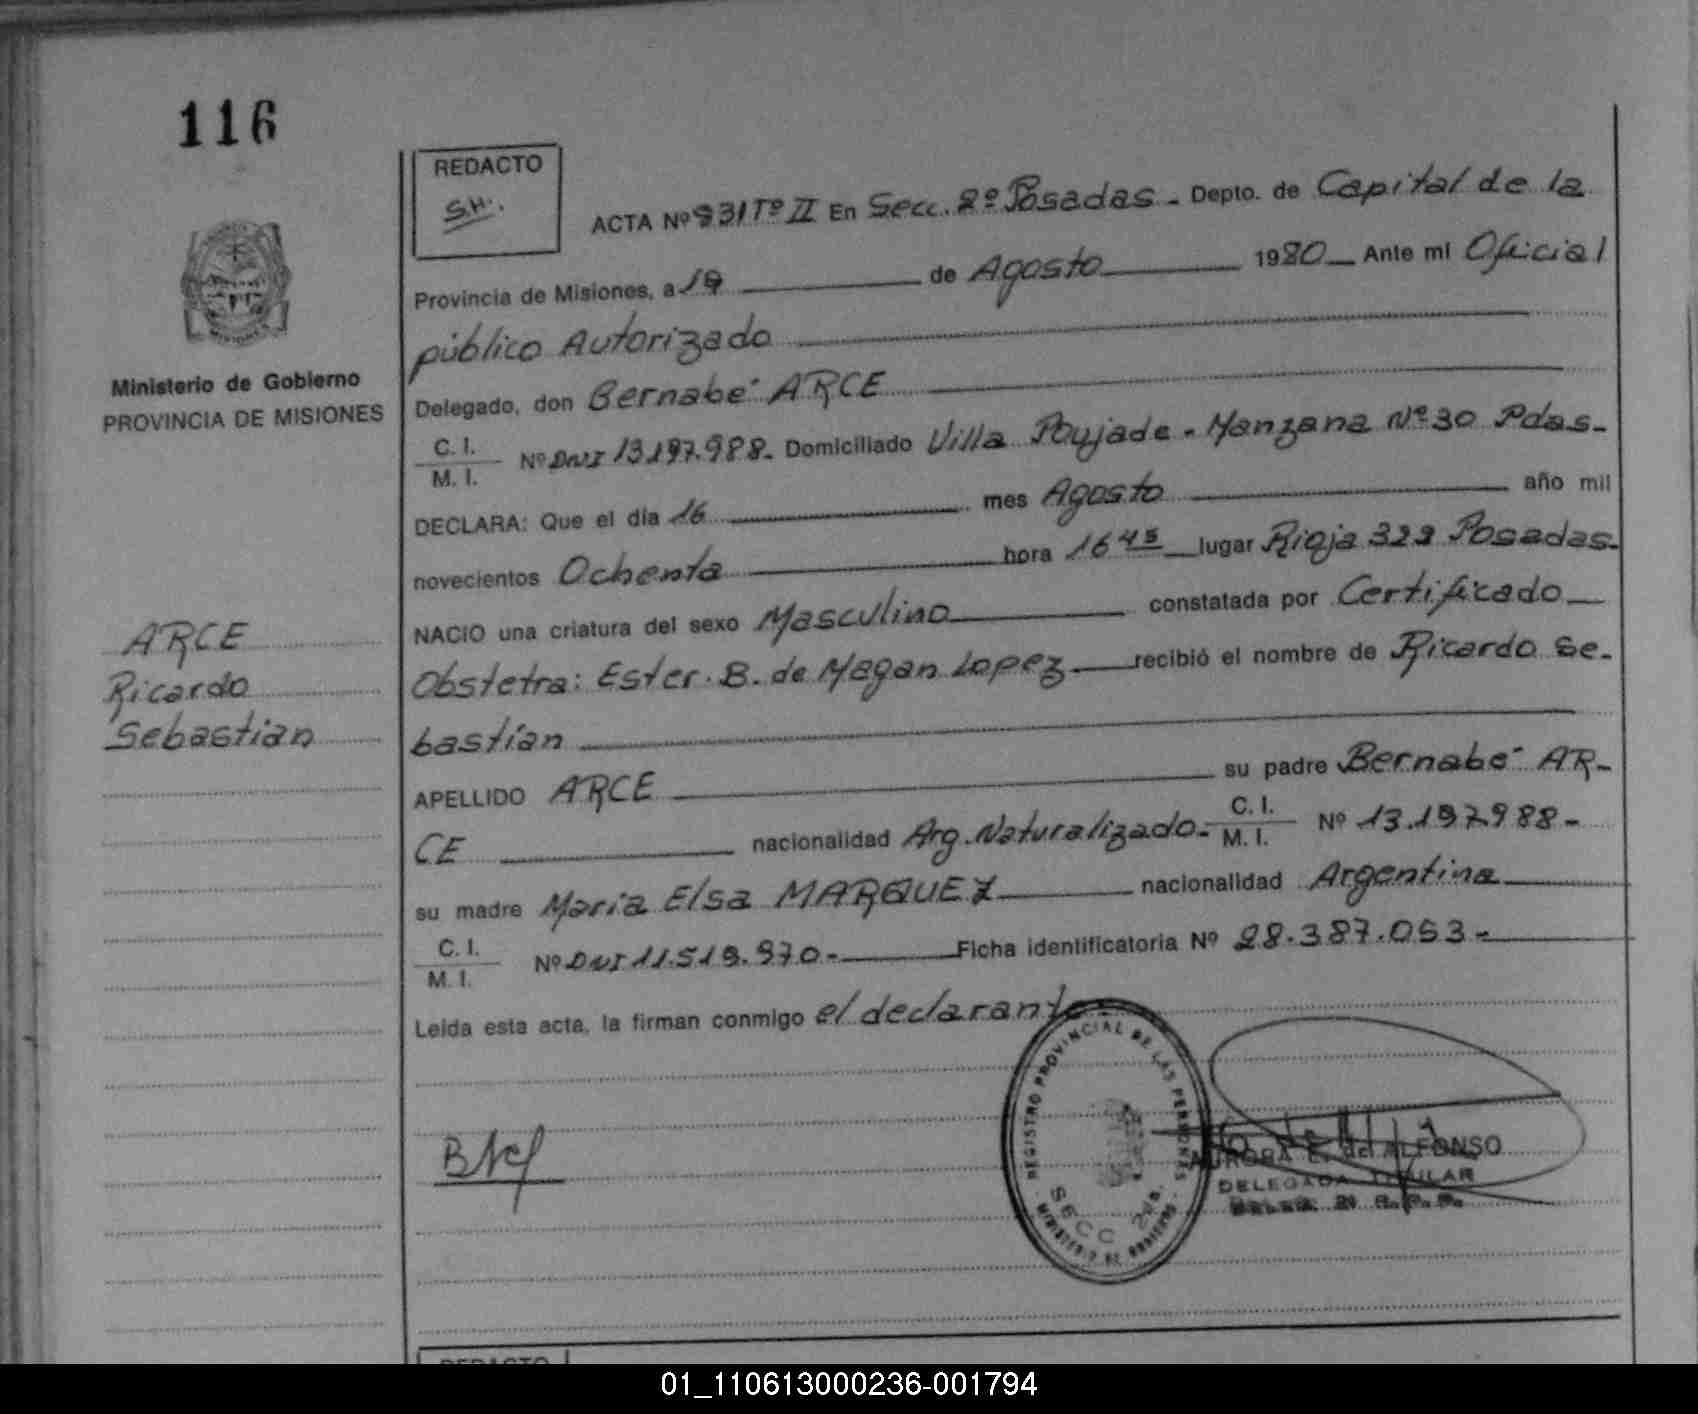 116
REDACTO
S.H.
ACTA Nº 931 Tº II En Secc. 2º Posadas - Depto. de Capital de la
Provincia de Misiones, a 19 de Agosto 1980 Ante mi Oficial
público Autorizado
Delegado, don Bernabé ARCE
C. I.
M. I.
Nº DNI 13.197.988. Domiciliado Villa Poujade - Manzana Nº 30 Pdas-
DECLARA: Que el día 16 mes Agosto año mil
novecientos Ochenta hora 16 45 lugar Rioja 322 Posadas-
NACIO una criatura del sexo Masculino constatada por Certificado
Obstetra: Ester. B. de Magan Lopez recibió el nombre de Ricardo Se-
bastían
APELLIDO ARCE su padre Bernabé AR-
CE nacionalidad Arg. Naturalizado - C. I.
M. I. Nº 13.197988-
su madre Maria Elsa MARQUEZ nacionalidad Argentina
C. I.
M. I.
Nº DNI 11.519.970.- Ficha identificatoria Nº 28.387.053-
Leida esta acta, la firman conmigo el declarante
Ministerio de Gobierno
PROVINCIA DE MISIONES
ARCE
Ricardo
Sebastian
MISIONES
REGISTRO PROVINCIAL DE LAS PERSONAS
SECC 2da.
MINISTERIO DE GOBIERNO
AURORA E. de ALFONSO
DELEGADA TITULAR
REDACTO
01_110613000236-001794